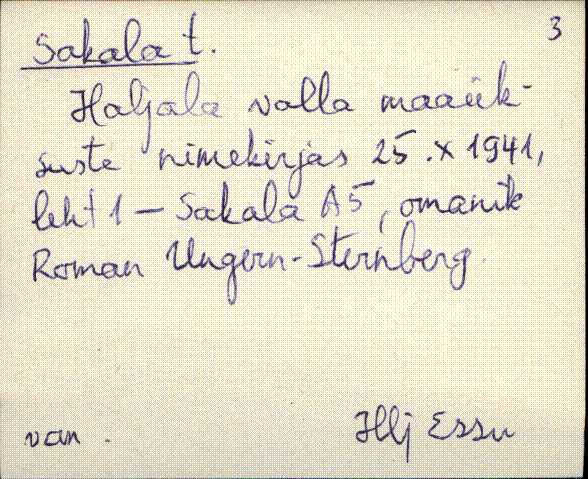 3
Sakala t.
Haljala valla maaük-
suste nimekirjas 25.X 1941,
leht 1 – Sakala A5, omanik
Roman Ungern-Sternberg.
van. Hlj Essu